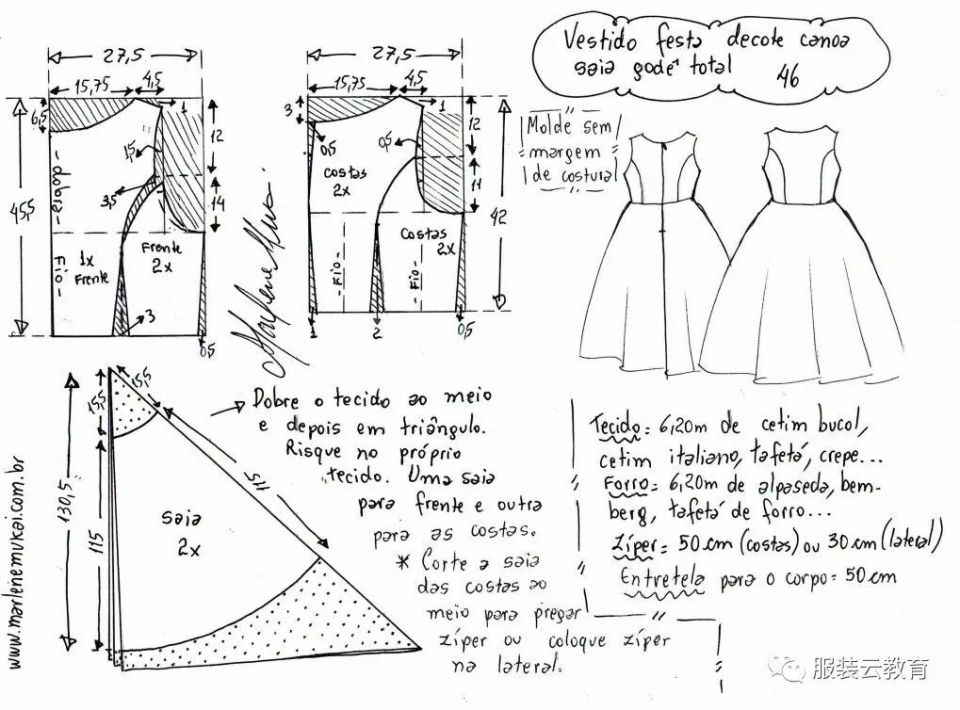 Vestido festa decote canoa
saia godê total 46
Molde sem
margem
de costura
27,5
15,75
4,5
1
6,5
12
1,5
dobra
3,5
14
45,5
Fio
1x
Frente
Frente
2x
3
0,5
27,5
15,75
4,5
3
1
12
0,5
0,5
costas
2x
11
42
costas
2x
Fio
Fio
1
2
0,5
Marlene Mukai
www.marlenemukai.com.br
15,5
15,5
130,5
115
115
saia
2x
Dobre o tecido ao meio
e depois em triângulo.
Risque no próprio
tecido. Uma saia
para frente e outra
para as costas.
* Corte a saia
das costas ao
meio para pregar
zíper ou coloque zíper
na lateral.
Tecido = 6,20m de cetim bucol,
cetim italiano, tafetá, crepe...
Forro = 6,20m de alpaseda, bem-
berg, tafetá de forro...
Zíper = 50 cm (costas) ou 30 cm (lateral)
Entretela para o corpo = 50 cm
服装云教育